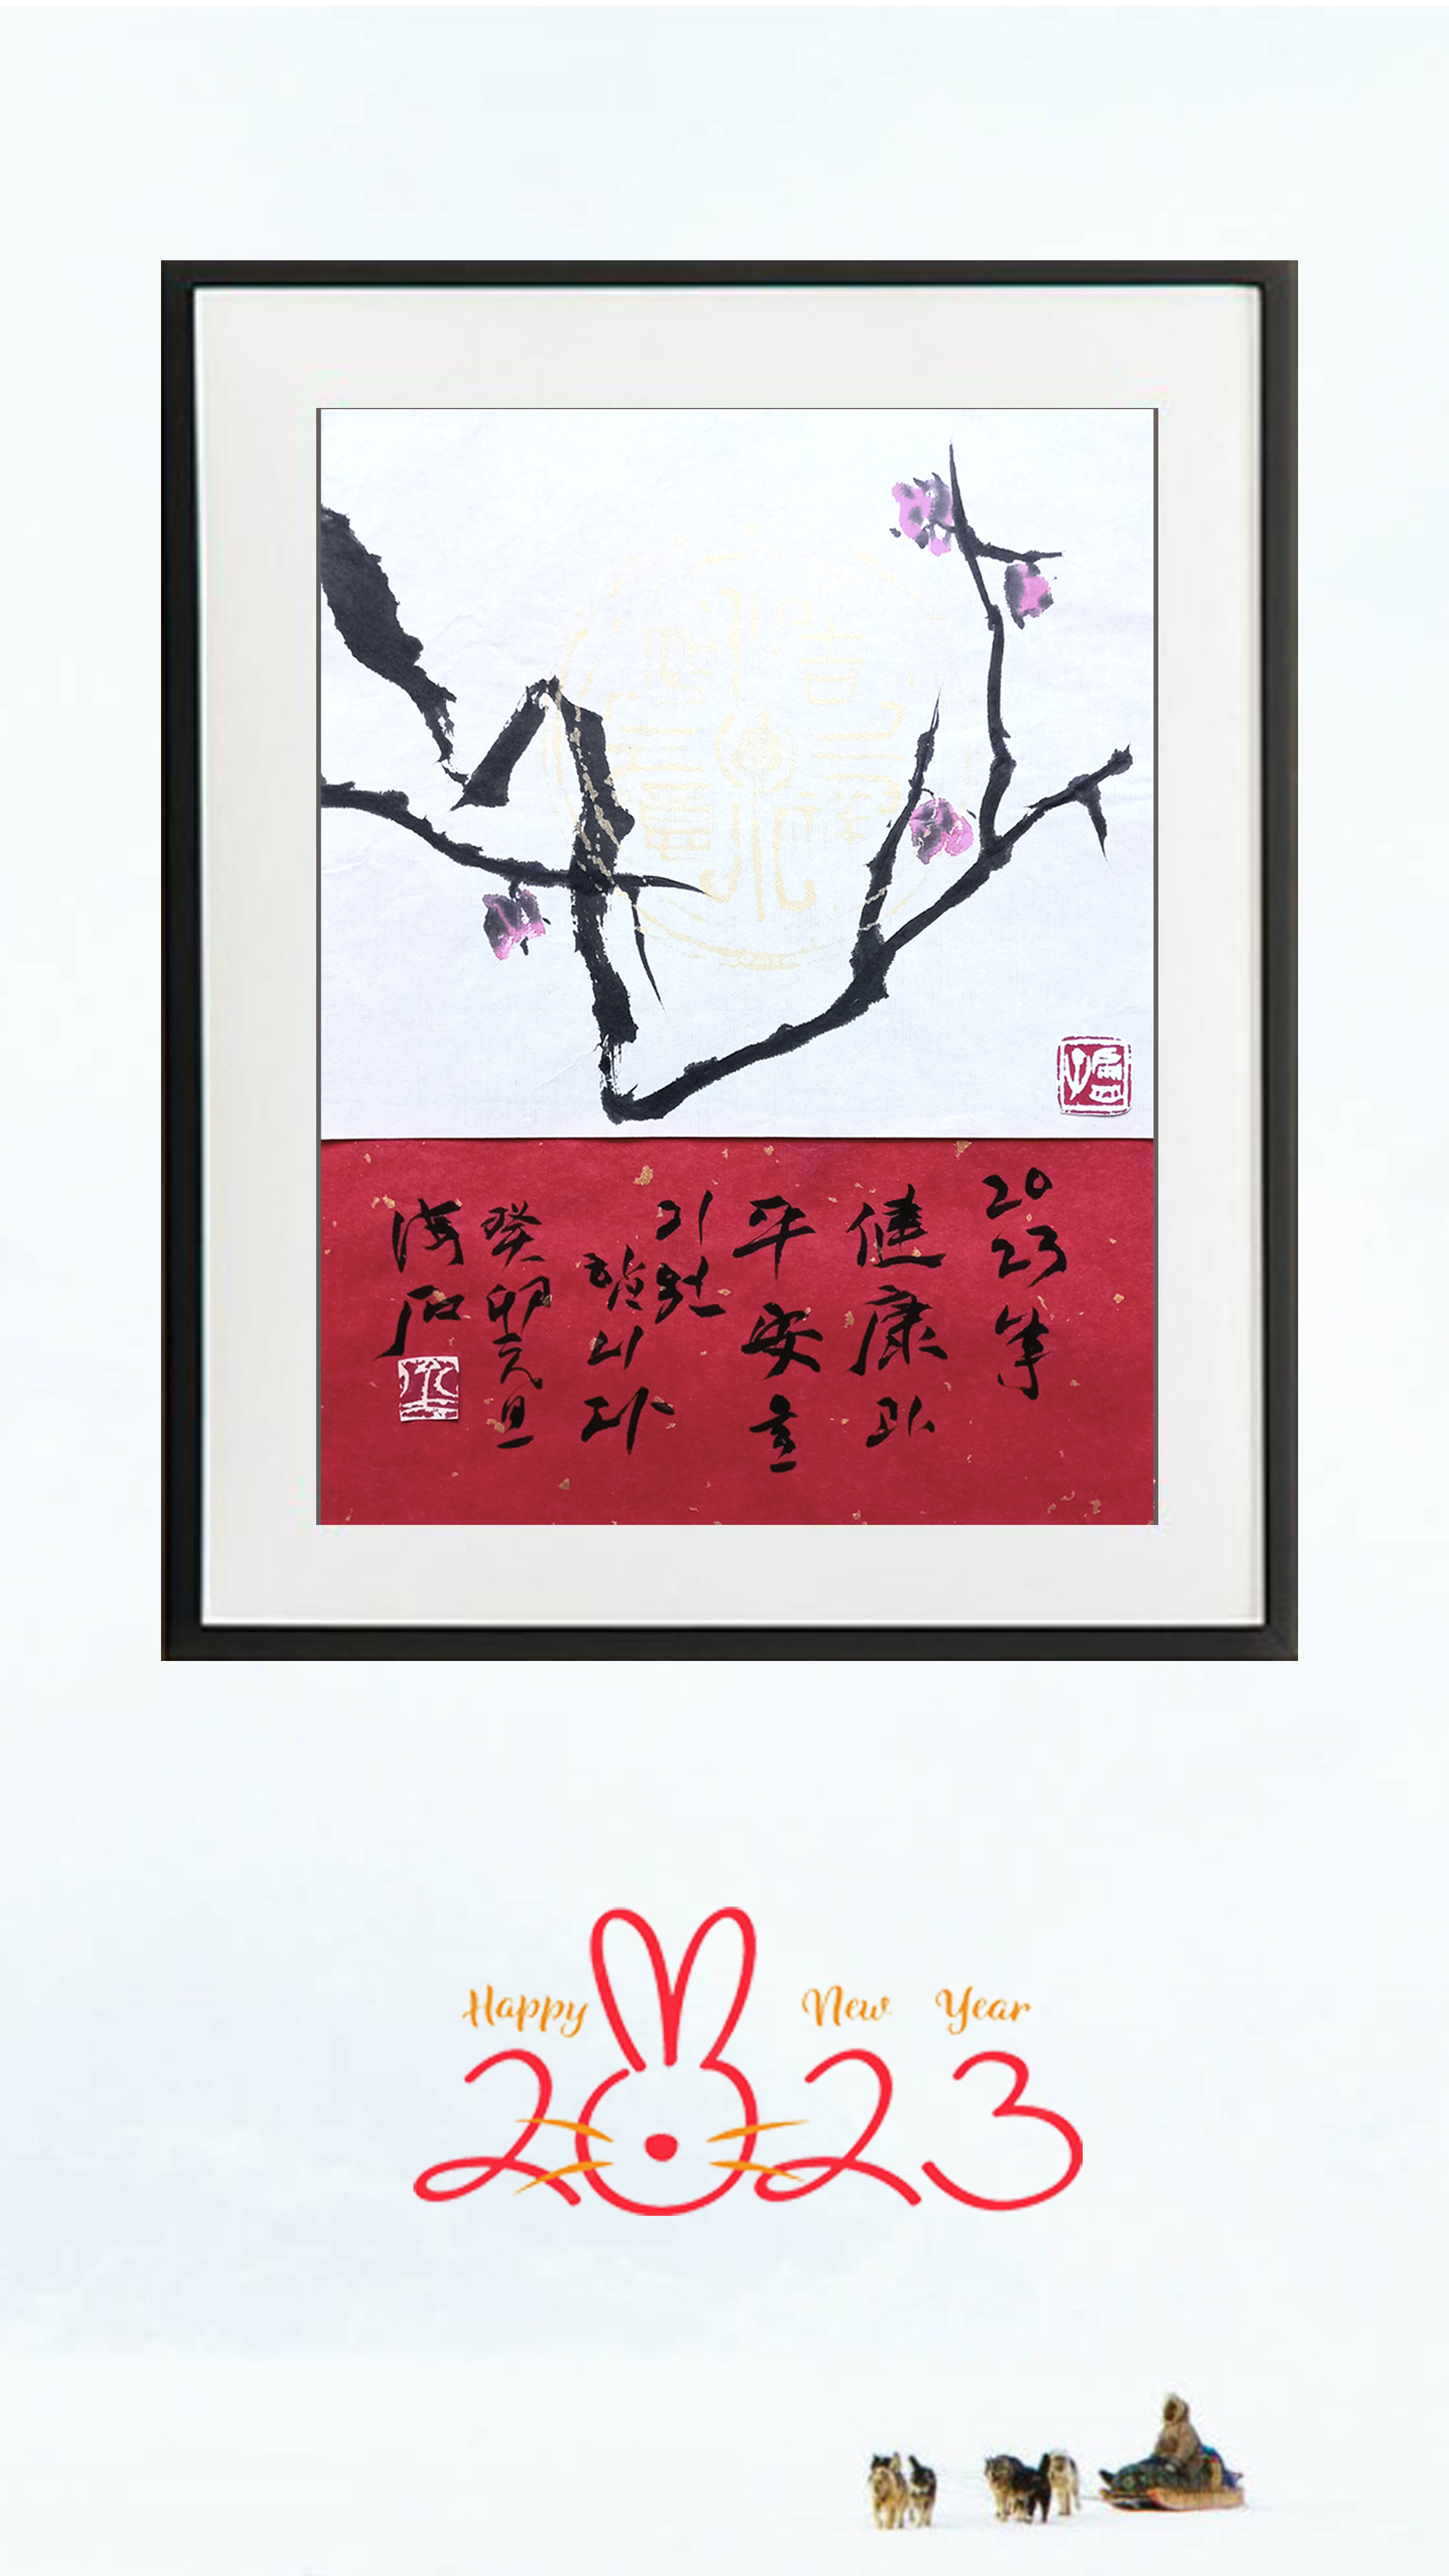 2023年
健康과
平安을
기원
합니다
癸卯元旦
海石
Happy New Year
2023